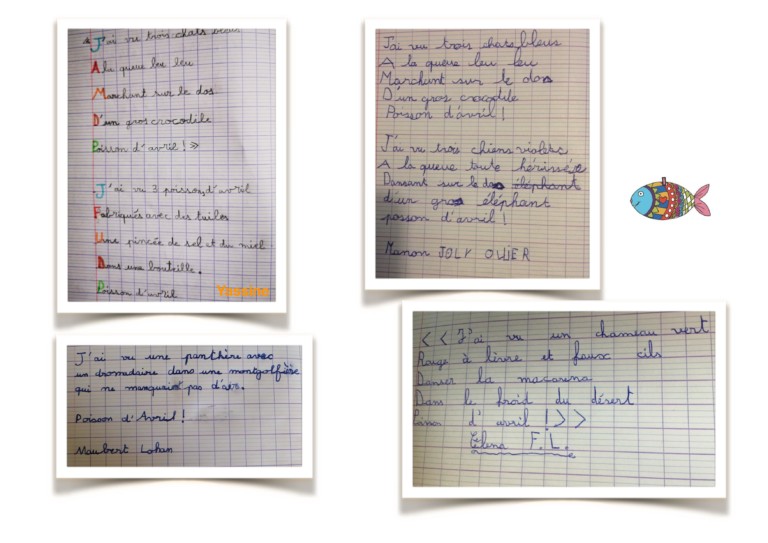 « J'ai vu trois chats bleus
A la queue leu leu
Marchant sur le dos
D'un gros crocodile
Poisson d'avril ! »
J'ai vu 3 poissons d'avril
Fabriqués avec des tuiles
Une pincée de sel et du miel
Dans une bouteille.
Poisson d'avril
J'ai vu trois chats bleus
A la queue leu leu
Marchant sur le dos
D'un gros crocodile
Poisson d'avril !
J'ai vu trois chiens violets
A la queue toute hérissée
Dansant sur le dos éléphant
d'un gros éléphant
posson d'avril !
Manon JOLY OLLIER
J'ai vu une panthère avec
un dromadaire dans une montgolfière
qui ne manquriot pas d'airs.
Poisson d'Avril !
Maubert Lohan
< < J'ai vu un chameau vert
Rouge à lèvre et faux cils
Danser la macarena
Dans le froid du désert
d'avril ! > >
Éléna F.L.